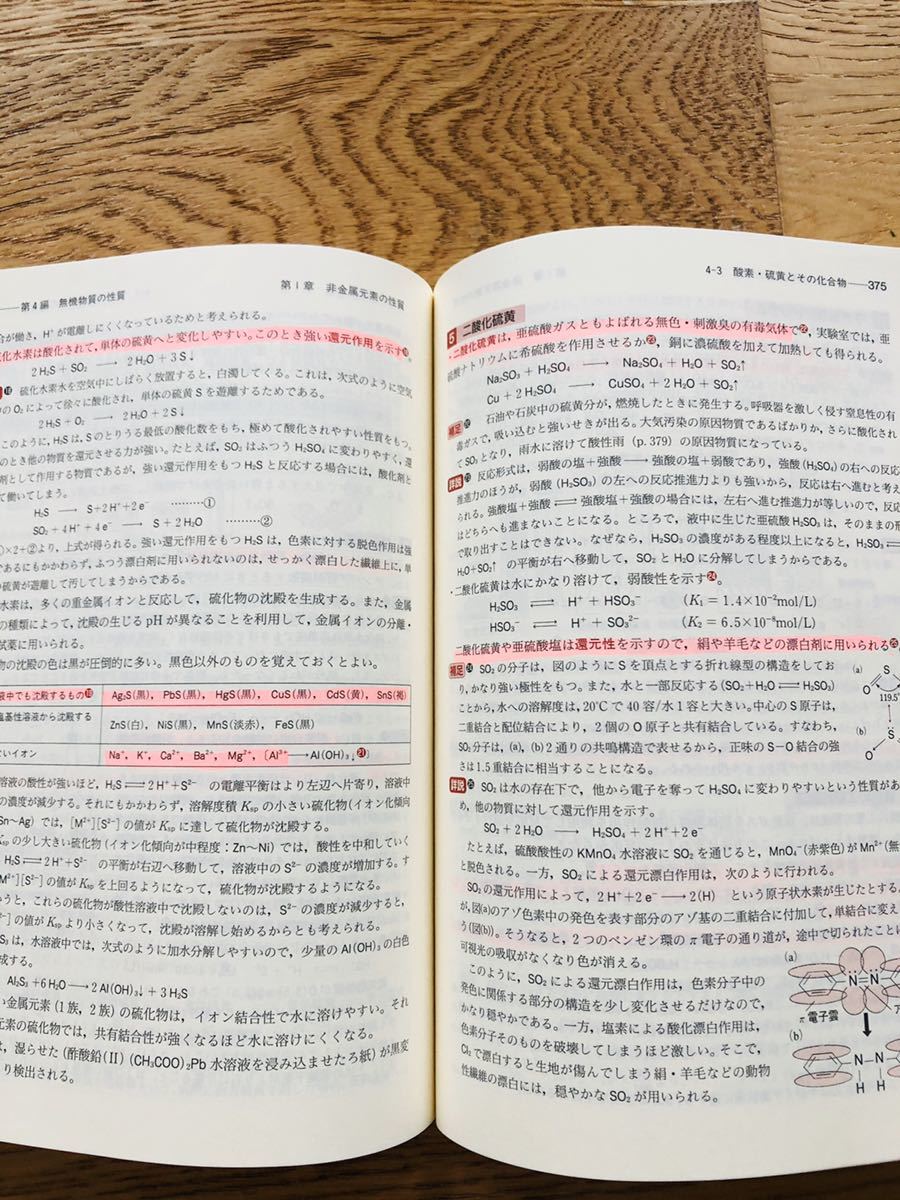 第4編 無機物質の性質
第1章 非金属元素の性質
合が働き，H⁺が電離しにくくなっているためと考えられる。
化水素は酸化されて，単体の硫黄へと変化しやすい。このとき強い還元作用を示す
2H₂S + SO₂ ⟶ 2H₂O + 3S↓
硫化水素水を空気中にしばらく放置すると，白濁してくる。これは，次式のように空気
中のO₂によって徐々に酸化され，単体の硫黄Sを遊離するためである。
2H₂S + O₂ ⟶ 2H₂O + 2S↓
このように，H₂Sは，Sのとりうる最低の酸化数をもち，極めて酸化されやすい性質をもつ。
のとき他の物質を還元させる力が強い。たとえば，SO₂はふつうH₂SO₄に変わりやすく，還
剤として作用する物質であるが，強い還元作用をもつH₂Sと反応する場合には，酸化剤と
て働いてしまう。
H₂S ⟶ S+2H⁺+2e⁻ ………①
SO₂+4H⁺+4e⁻ ⟶ S+2H₂O ………②
①×2+②より，上式が得られる。強い還元作用をもつH₂Sは，色素に対する脱色作用は強
であるにもかかわらず，ふつう漂白剤に用いられないのは，せっかく漂白した繊維上に，単
の硫黄が遊離して汚してしまうからである。
水素は，多くの重金属イオンと反応して，硫化物の沈殿を生成する。また，金属
の種類によって，沈殿の生じるpHが異なることを利用して，金属イオンの分離・
試薬に用いられる。
物の沈殿の色は黒が圧倒的に多い。黒色以外のものを覚えておくとよい。
液中でも沈殿するもの⑲ Ag₂S(黒)，PbS(黒)，HgS(黒)，CuS(黒)，CdS(黄)，SnS(褐)
塩基性溶液から沈殿する ZnS(白)，NiS(黒)，MnS(淡赤)，FeS(黒)
ないイオン Na⁺，K⁺，Ca²⁺，Ba²⁺，Mg²⁺，(Al³⁺⟶Al(OH)₃↓)㉑
溶液の酸性が強いほど，H₂S⇄2H⁺+S²⁻ の電離平衡はより左辺へ片寄り，溶液中
の濃度が減少する。それにもかかわらず，溶解度積Kspの小さい硫化物(イオン化傾向
Sn～Ag)では，[M²⁺][S²⁻]の値がKspに達して硫化物が沈殿する。
Kspの少し大きい硫化物(イオン化傾向が中程度：Zn～Ni)では，酸性を中和していく
H₂S⇄2H⁺+S²⁻ の平衡が右辺へ移動して，溶液中のS²⁻の濃度が増加する。す
M²⁺][S²⁻]の値がKspを上回るようになって，硫化物が沈殿するようになる。
いうと，これらの硫化物が酸性溶液中で沈殿しないのは，S²⁻の濃度が減少すると，
の値がKspより小さくなって，沈殿が溶解し始めるからとも考えられる。
S₃は，水溶液中では，次式のように加水分解しやすいので，少量のAl(OH)₃の白色
成する。
Al₂S₃+6H₂O⟶2Al(OH)₃↓+3H₂S
い金属元素(1族，2族)の硫化物は，イオン結合性で水に溶けやすい。それ
元素の硫化物では，共有結合性が強くなるほど水に溶けにくくなる。
は，湿らせた(酢酸鉛(Ⅱ)(CH₃COO)₂Pb水溶液を浸み込ませたろ紙)が黒変
り検出される。
4-3 酸素・硫黄とその化合物――375
5 二酸化硫黄
二酸化硫黄は，亜硫酸ガスともよばれる無色・刺激臭の有毒気体で㉒，実験室では，亜
硫酸ナトリウムに希硫酸を作用させるか㉓，銅に濃硫酸を加えて加熱しても得られる。
Na₂SO₃ + H₂SO₄ ⟶ Na₂SO₄ + H₂O + SO₂↑
Cu + 2H₂SO₄ ⟶ CuSO₄ + 2H₂O + SO₂↑
補足㉒ 石油や石炭中の硫黄分が，燃焼したときに発生する。呼吸器を激しく侵す窒息性の有
毒ガスで，吸い込むと強いせきが出る。大気汚染の原因物質であるばかりか，さらに酸化され
てSO₃となり，雨水に溶けて酸性雨(p.379)の原因物質になっている。
詳説㉓ 反応形式は，弱酸の塩+強酸⟶強酸の塩+弱酸であり，強酸(H₂SO₄)の右への反応
推進力のほうが，弱酸(H₂SO₃)の左への反応推進力よりも強いから，反応は右へ進むと考え
られる。強酸塩+強酸⇄強酸塩+強酸の場合には，左右へ進む推進力が等しいので，反応
はどちらへも進まないことになる。ところで，液中に生じた亜硫酸H₂SO₃は，そのままの形
で取り出すことはできない。なぜなら，H₂SO₃の濃度がある程度以上になると，H₂SO₃⇄
H₂O+SO₂↑ の平衡が右へ移動して，SO₂とH₂Oに分解してしまうからである。
二酸化硫黄は水にかなり溶けて，弱酸性を示す㉔。
H₂SO₃ ⇄ H⁺ + HSO₃⁻ (K₁ = 1.4×10⁻²mol/L)
HSO₃⁻ ⇄ H⁺ + SO₃²⁻ (K₂ = 6.5×10⁻⁸mol/L)
二酸化硫黄や亜硫酸塩は還元性を示すので，絹や羊毛などの漂白剤に用いられる㉕。
補足㉔ SO₂の分子は，図のようにSを頂点とする折れ線型の構造をしてお
り，かなり強い極性をもつ。また，水と一部反応する(SO₂+H₂O⇄H₂SO₃)
ことから，水への溶解度は，20℃で40容/水1容と大きい。中心のS原子は，
二重結合と配位結合により，2個のO原子と共有結合している。すなわち，
SO₂分子は，(a)，(b)2通りの共鳴構造で表せるから，正味のS－O結合の強
さは1.5重結合に相当することになる。
(a)
S
119.5°
(b)
S
詳説㉕ SO₂は水の存在下で，他から電子を奪ってH₂SO₄に変わりやすいという性質があ
ため，他の物質に対して還元作用を示す。
SO₂+2H₂O ⟶ H₂SO₄+2H⁺+2e⁻
たとえば，硫酸酸性のKMnO₄水溶液にSO₂を通じると，MnO₄⁻(赤紫色)がMn²⁺(無
と脱色される。一方，SO₂による還元漂白作用は，次のように行われる。
SO₂の還元作用によって，2H⁺+2e⁻⟶2(H) という原子状水素が生じたとする
が，図(a)のアゾ色素中の発色を表す部分のアゾ基の二重結合に付加して，単結合に変え
う(図(b))。そうなると，2つのベンゼン環のπ電子の通り道が，途中で切られたことに
可視光の吸収がなくなり色が消える。
このように，SO₂による還元漂白作用は，色素分子中の
発色に関係する部分の構造を少し変化させるだけなので，
かなり穏やかである。一方，塩素による酸化漂白作用は，
色素分子そのものを破壊してしまうほど激しい。そこで，
Cl₂で漂白すると生地が傷んでしまう絹・羊毛などの動物
性繊維の漂白には，穏やかなSO₂が用いられる。
(a)
N=N
π電子雲
(b)
N－N
H H